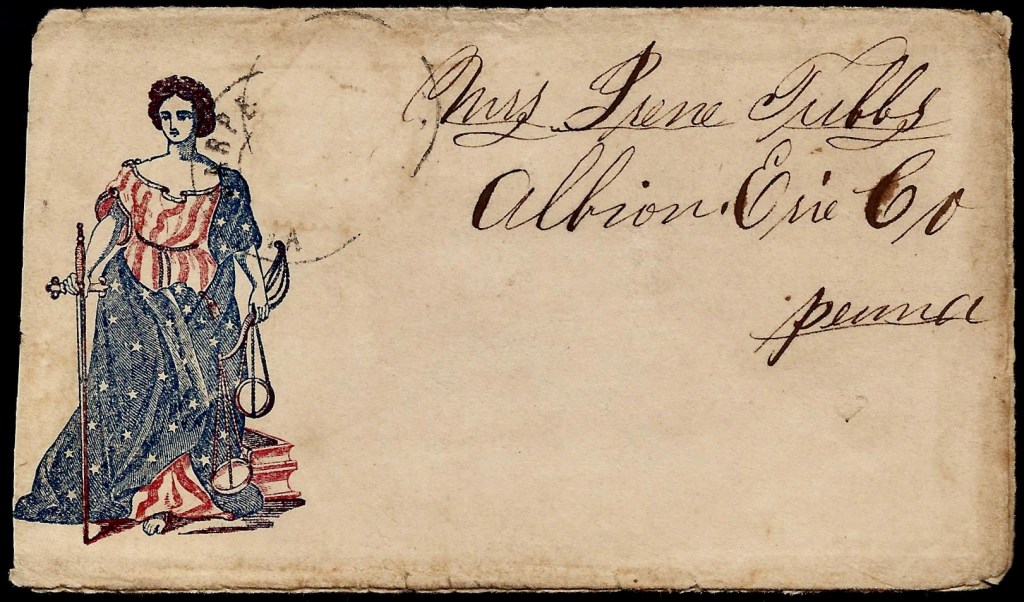 Mrs Irene Tubbs
Albion Erie Co
penna